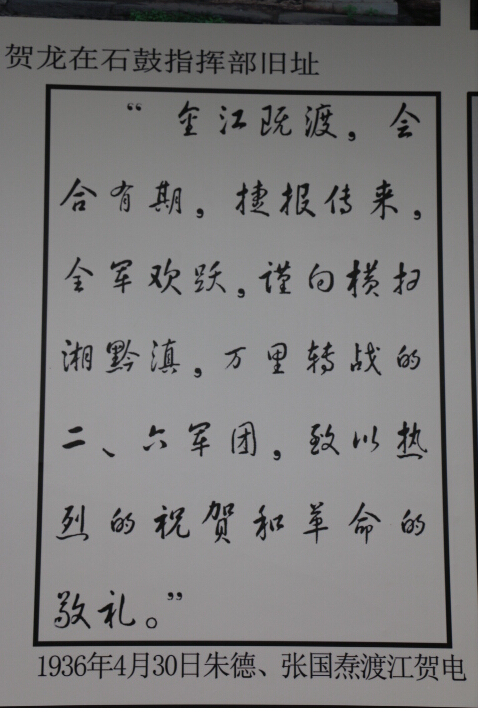 贺龙在石鼓指挥部旧址
“金江既渡，会
合有期，捷报传来，
全军欢跃，谨向横扫
湘黔滇，万里转战的
二、六军团，致以热
烈的祝贺和革命的
敬礼。”
1936年4月30日朱德、张国焘渡江贺电